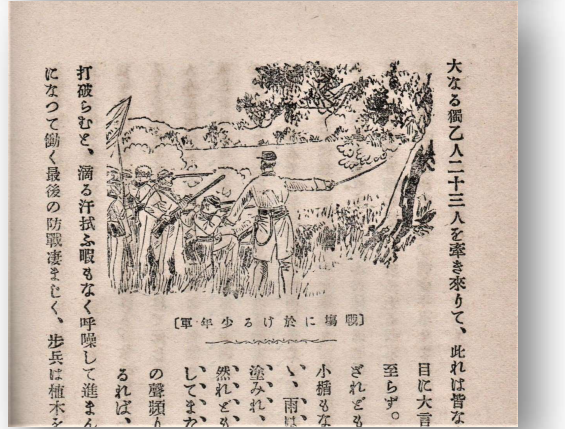 大なる獨乙人二十三人を牽き來りて、此れは皆な
目に大言
至らず。
ざれども
小楯もな
い、雨は
塗みれ、
然れども
してまた
の聲頻り
るれば、
〔戰塲に於ける少年軍〕
打破らむと、滴る汗拭ふ暇もなく呼噪して進まん
になつて働く最後の防戰凄まじく、歩兵は植木を